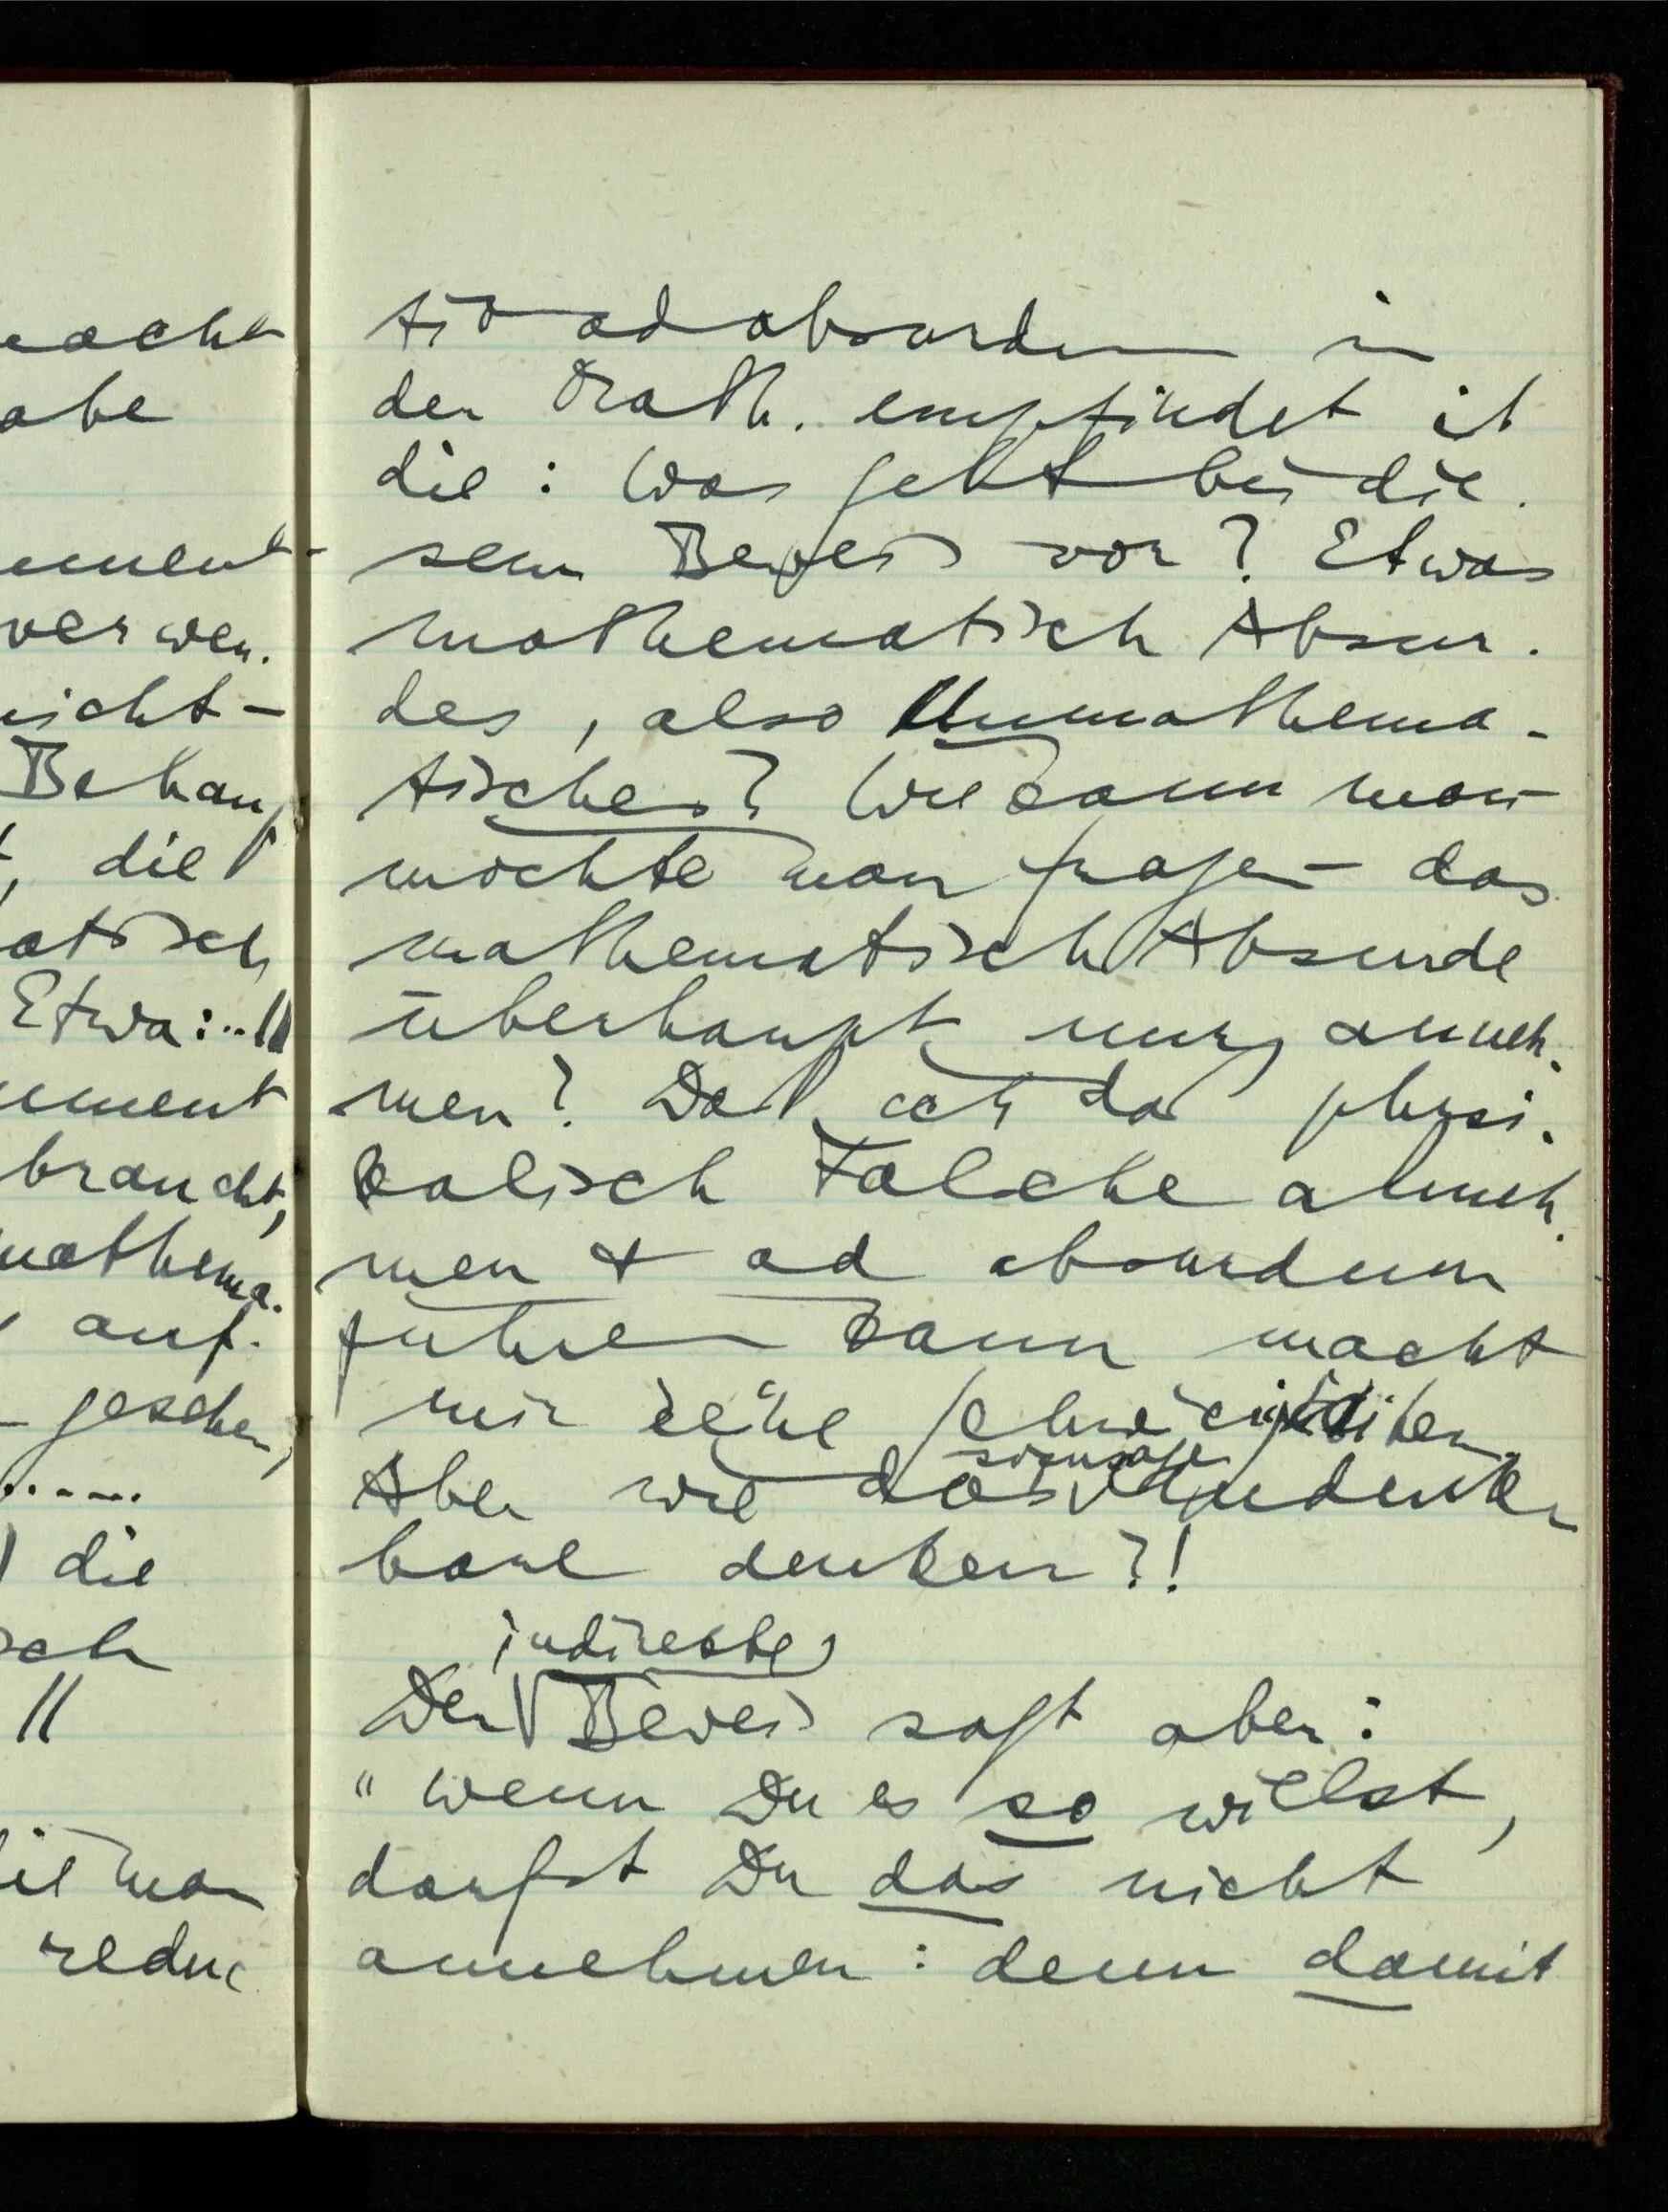 nacht
abe
ument-
verwen.
nicht-
Behaup
, die
atisch
Etwa: ..
ument
braucht,
mathema.
auf.
gesehen,
.....
die
sch
"
die man
reduc
tio ad absurdum in
der Math. empfindet ist
die: Was geht bei die.
sem Beweis vor? Etwas
mathematisch Absur.
des, also Unmathema-
tisches? Wie kann man –
möchte man fragen – das
mathematisch Absurde
überhaupt nur anneh.
men? Daß ich das physi.
kalisch Falsche anneh.
men & ad absurdum
führen kann macht
mir keine Schwierigkeiten.
Aber wie das sozusagen Undenk
bare denken?!
indirekte
Der Beweis sagt aber:
"wenn Du es so willst,
darfst Du das nicht
annehmen: denn damit